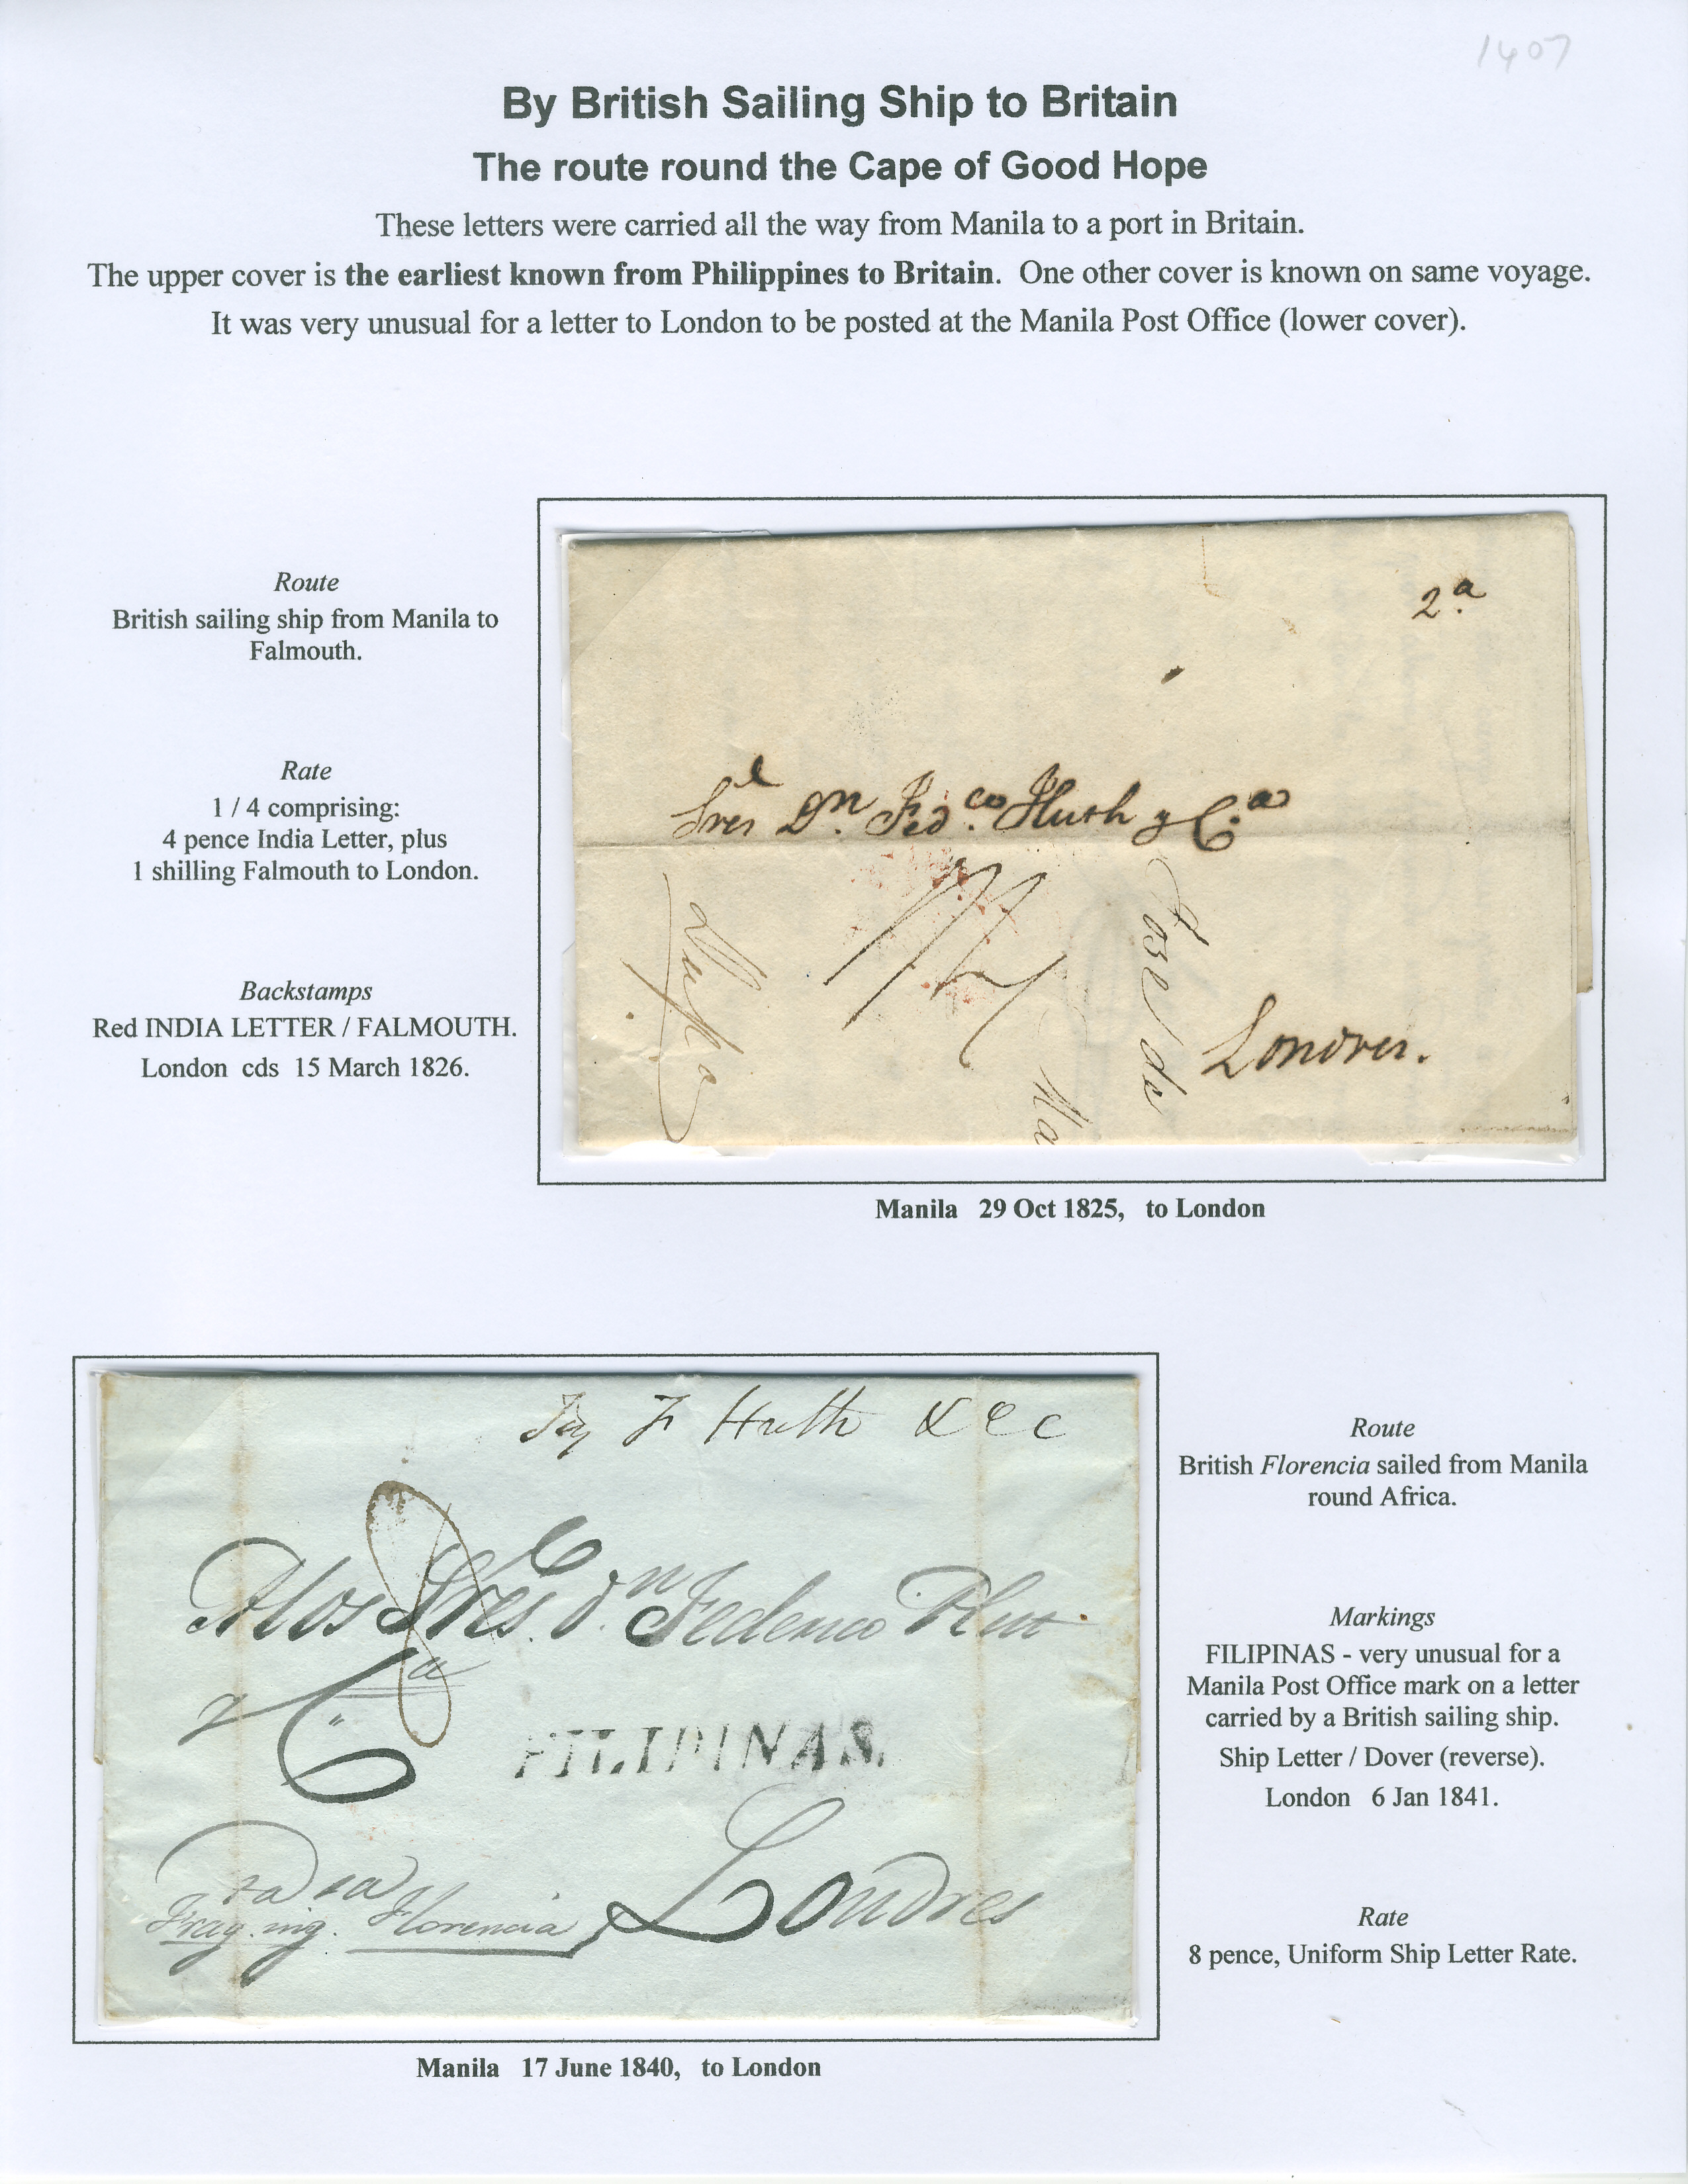 1407
By British Sailing Ship to Britain
The route round the Cape of Good Hope
These letters were carried all the way from Manila to a port in Britain.
The upper cover is the earliest known from Philippines to Britain. One other cover is known on same voyage.
It was very unusual for a letter to London to be posted at the Manila Post Office (lower cover).
Route
British sailing ship from Manila to
Falmouth.
Rate
1 / 4 comprising:
4 pence India Letter, plus
1 shilling Falmouth to London.
Backstamps
Red INDIA LETTER / FALMOUTH.
London cds 15 March 1826.
2a
Sres Dn. Fedco. Huth y C.a
1/4
Jose de
Londres.
Manila 29 Oct 1825, to London
F Huth & CC
8
Alos Sres. dn. Federico Hut
y Ca
FILIPINAS.
Londres
Frag. ing. Florencia
Manila 17 June 1840, to London
Route
British Florencia sailed from Manila
round Africa.
Markings
FILIPINAS - very unusual for a
Manila Post Office mark on a letter
carried by a British sailing ship.
Ship Letter / Dover (reverse).
London 6 Jan 1841.
Rate
8 pence, Uniform Ship Letter Rate.